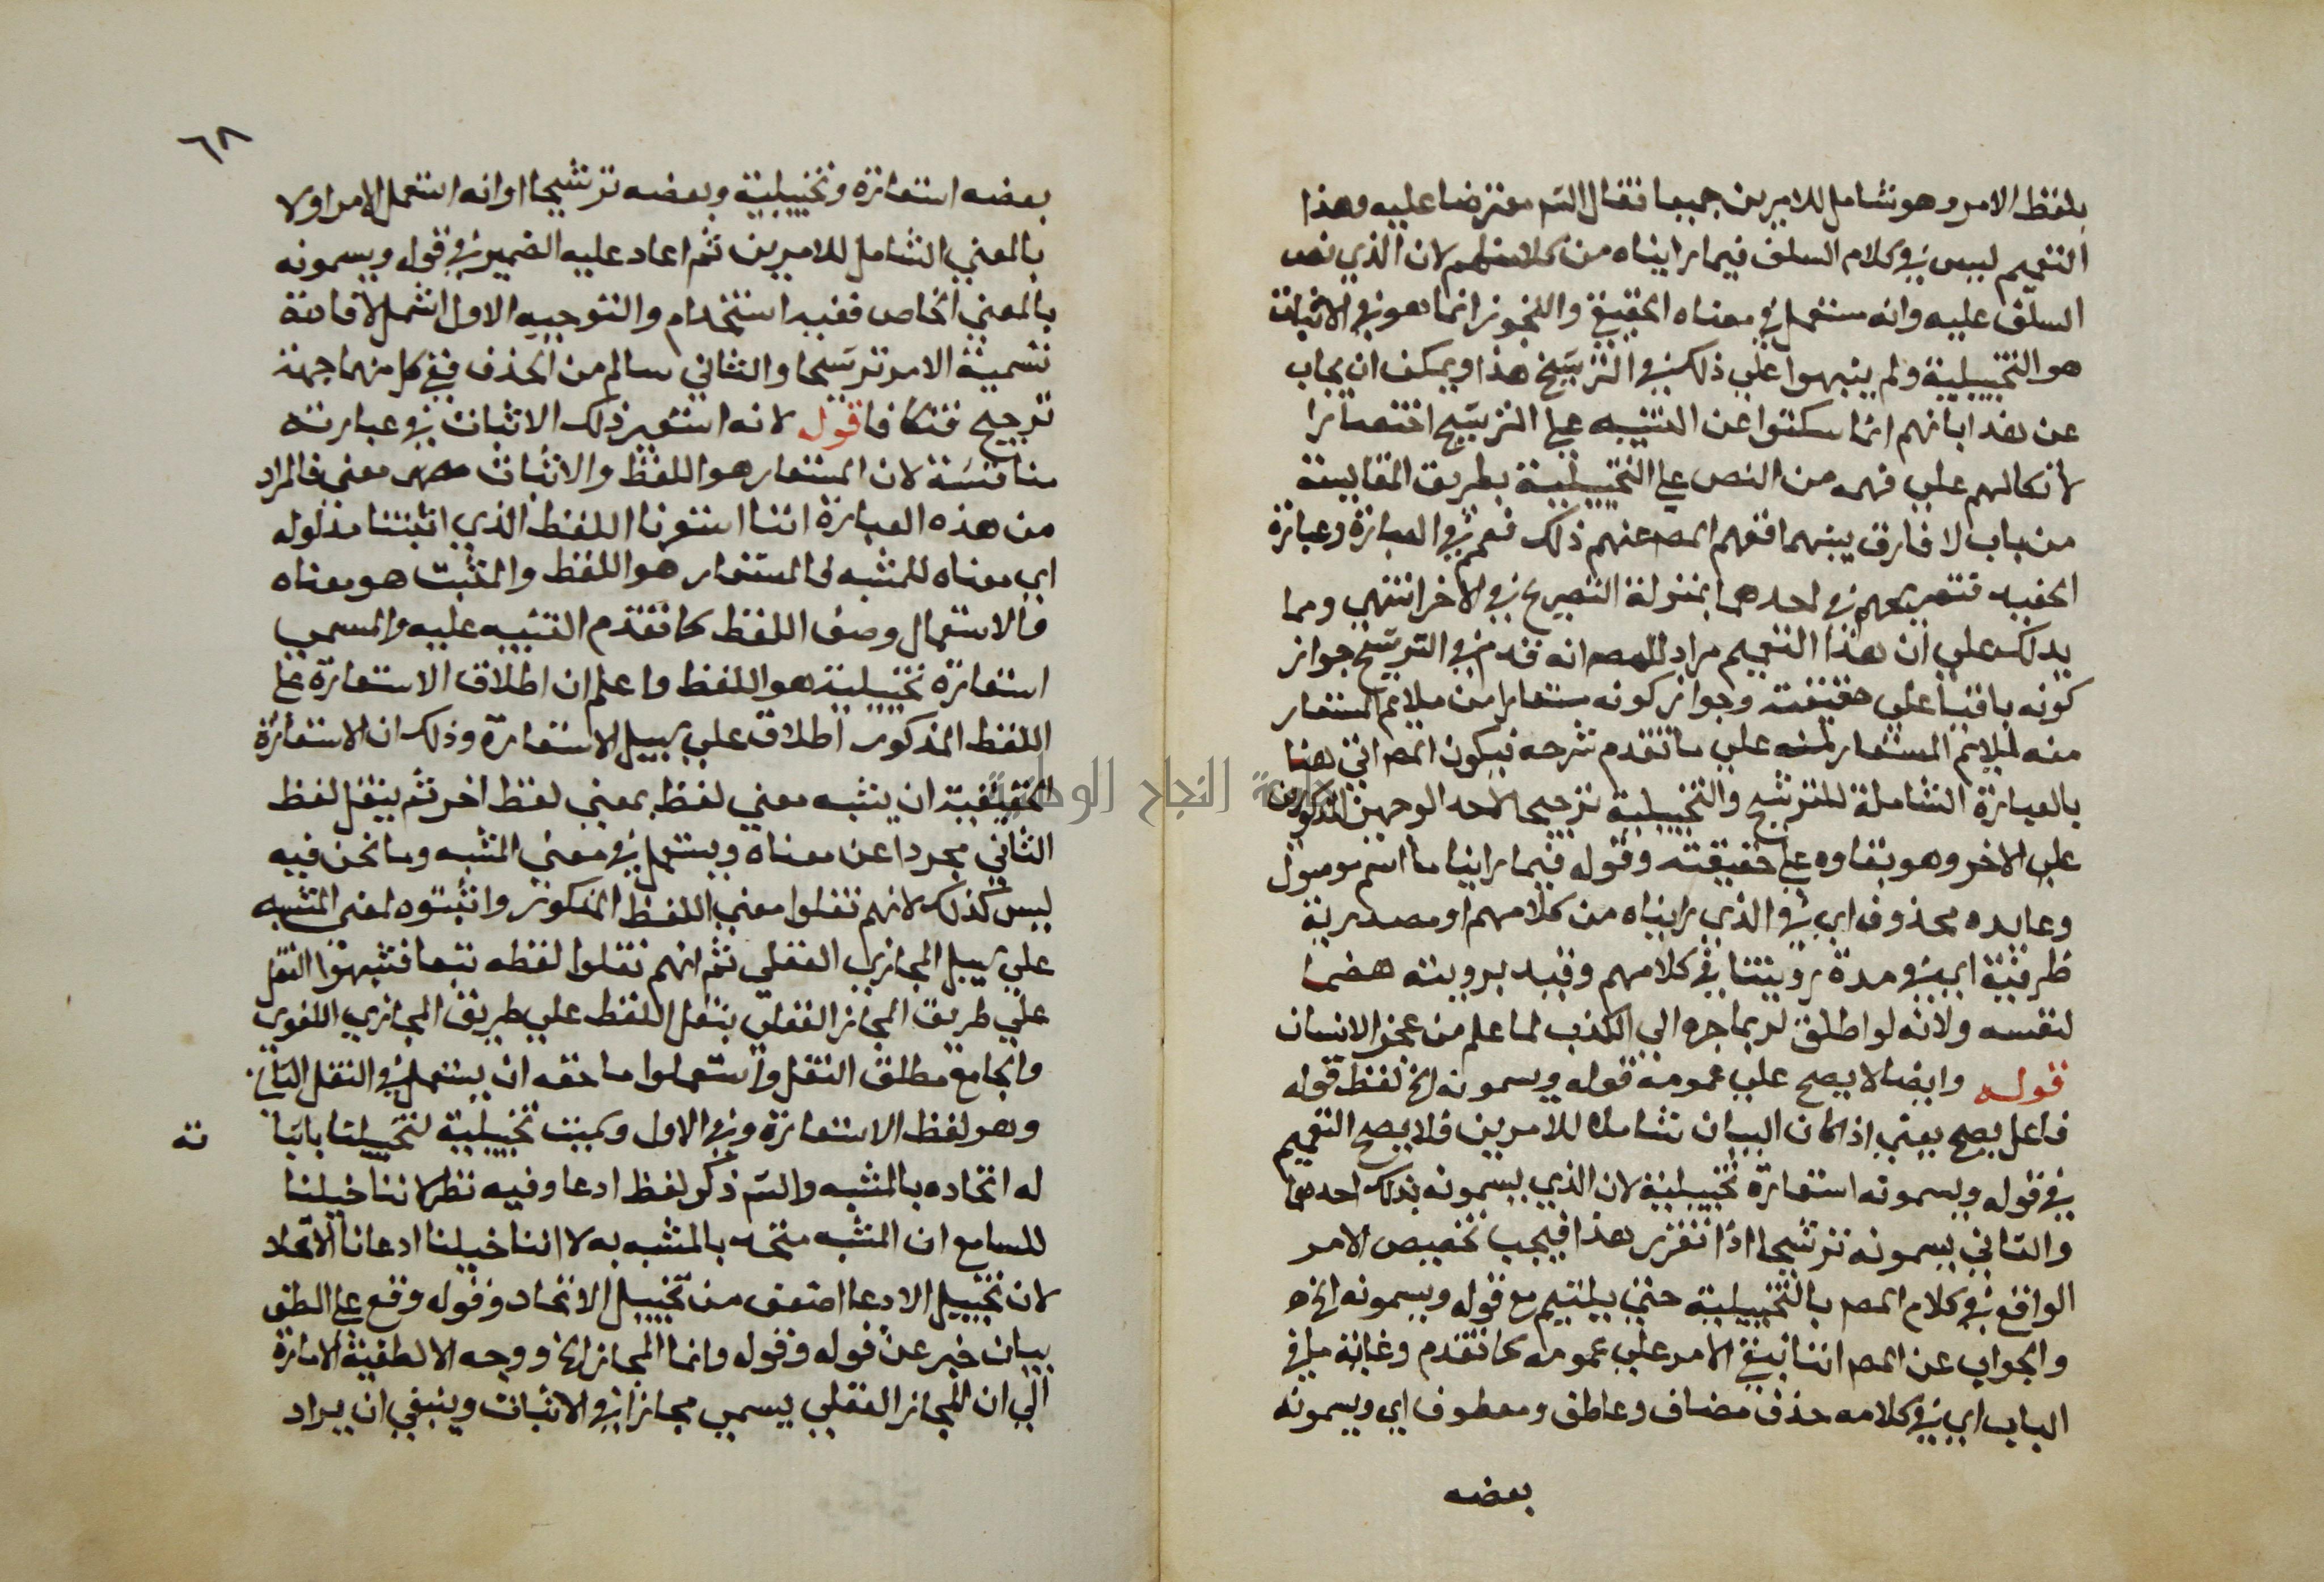 بلفظ الامر وهو شامل للامرين جميعا فقال الش معترضا عليه وهذا
التعميم ليس في كلام السلف فيما رايناه من كلامهم لان الذي نص
السلف عليه وانه مستعمل في معناه الحقيقي والتجوز انما هو في الاثبات
هو التخييلية ولم ينبهوا علي ذلك في الترشيح هذا ويمكن ان يجاب
عن هذا بانهم انما سكتوا عن التنبيه علي الترشيح اختصارا
لاتكالهم علي فهمه من النص علي التخييلية بطريق المقايسة
من باب لا فارق بينهما ففهم المص عنهم ذلك فعمم في العبارة وعبارة
الحفيد فتصريحهم في احدهما بمنزلة التصريح في الاخر انتهي ومما
يدلك علي ان هذا التعميم مراد للمص انه قدم في الترشيح جواز
كونه باقيا علي حقيقته وجواز كونه مستعارا من ملايم المستعار
منه لملايم المستعار له علي ما تقدم شرحه فيكون المص اتي هنا
بالعبارة الشاملة للترشيح والتخييلية ترجيحا لاحد الوجهين المذكورين
علي الاخر وهو بقاوه علي حقيقته وقوله فيما راينا ما اسم موصول
وعايده محذوف اي في الذي رايناه من كلامهم او مصدرية
ظرفية اي في مدة رويتنا في كلامهم وقيد برويته هضما
لنفسه ولانه لو اطلق لربما جره الي الكذب لما علم من عجز الانسان
قوله وايضا لا يصح علي عمومه قوله ويسمونه الخ لفظ قوله
فاعل يصح يعني اذا كان البيان شاملا للامرين فلا يصح التعميم
في قوله ويسمونه استعارة تخييلية لان الذي يسمونه بذلك احدهما
والثاني يسمونه ترشيحا اذا تقرر هذا فيجب تخصيص الامر
الواقع في كلام المص بالتخييلية حتي يلتيم مع قوله ويسمونه الخ
والجواب عن المص اننا نبقي الامر علي عمومه كما تقدم وغاية ما في
الباب اي في كلامه حذف مضاف وعاطف ومعطوف اي ويسمونه
بعضه
٦٨
بعضه استعارة وتخييلية وبعضه ترشيحا او انه استعمل الامر اولا
بالمعني الشامل للامرين ثم اعاد عليه الضمير في قوله ويسمونه
بالمعني الخاص ففيه استخدام والتوجيه الاول اشمل لافادته
تسمية الامر ترشيحا والثاني سالم من الحذف ففي كل منهما جهة
ترجيح فتكافا قوله لانه استعير ذلك الاثبات في عبارته
مناقشة لان المستعار هو اللفظ والاثبات معني فالمراد
من هذه العبارة اننا استعرنا اللفظ الذي اثبتنا مدلوله
اي معناه للمشبه فالمستعار هو اللفظ والمثبت هو معناه
فالاستعمال وصف اللفظ كما تقدم التنبيه عليه والمسمي
استعارة تخييلية هو اللفظ واعلم ان اطلاق الاستعارة علي
اللفظ المذكور اطلاق علي سبيل الاستعارة وذلك ان الاستعارة
الحقيقية ان يشبه معني لفظ بمعني لفظ اخر ثم ينقل لفظ
الثاني مجردا عن معناه ويستعمل في معني المشبه وما نحن فيه
ليس كذلك لانهم نقلوا معني اللفظ المذكور واثبتوه لمعني المشبه
علي سبيل المجاز العقلي ثم انهم نقلوا لفظه تبعا فشبهوا النقل
علي طريق المجاز العقلي بنقل اللفظ علي طريق المجازي اللغوي
والجامع مطلق النقل واستعملوا ما حقه ان يستعمل في النقل الثاني
وهو لفظ الاستعارة وفي الاول وسميت تخييلية لتخييلنا باثبا
ته
له اتحاده بالمشبه والش ذكر لفظ ادعا وفيه نظر لاننا خيلنا
للسامع ان المشبه متحد بالمشبه به لا اننا خيلنا ادعانا الاتحاد
لان تخييل الادعا اضعف من تخييل الاتحاد وقوله وقع علي الطف
بيان خبر عن قوله وقوله وانما المجاز الخ ووجه الالطفية الاشارة
الي ان المجاز العقلي يسمي مجازا في الاثبات وينبغي ان يراد
جامعة النجاح الوطنية